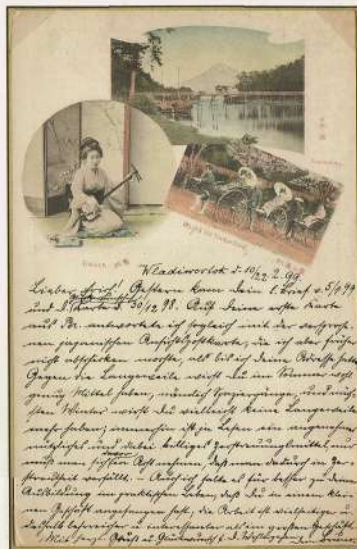 Wladiwostok d. 10/22. 2. 99.
Lieber Erich! Gestern kam dein l. Brief v. 5/1 99
und d. Karte v. 30/12 98. Auf deine erste Karte
aus Br. antwortete ich sogleich mit der versproche-
nen japanischen Ansichtspostkarte, die ich aber früher
nicht abschicken mochte, als bis ich deine Adresse hatte.
Gegen die Langeweile wirst du im Sommer wohl
genug Mittel haben, nämlich Spaziergänge, und näch-
sten Winter wirst du vielleicht keine Langeweile
mehr haben; immerhin ist ja Lesen ein angenehmes
nützliches und dabei billiges Zerstreuungsmittel, nur
muß man sich in Acht nehmen, daß man dadurch in Zer-
streutheit verfällt. – Auch ich halte es für besser zu deiner
Ausbildung im praktischen Leben, daß du in einem klei-
nen Geschäft angefangen hast, die Arbeit ist vielseitiger u.
deshalb lehrreicher u. interessanter als im großen Geschäfte.
Mit herz. Gruß u. Glückwunsch z. d.